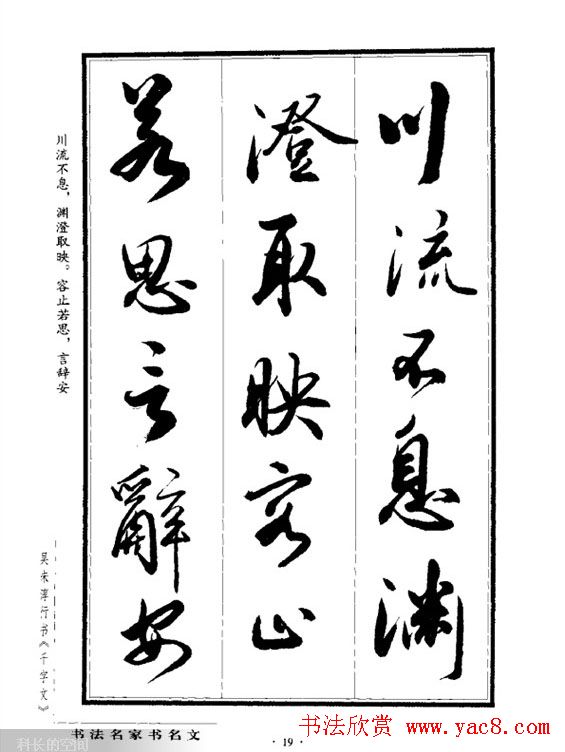 川流不息渊
澄取映容止
若思言辭安
川流不息，渊澄取映。容止若思，言辞安
吴未淳行书《千字文》
书法名家书名文
· 19 ·
书法欣赏 www.yac8.com
科长的空间